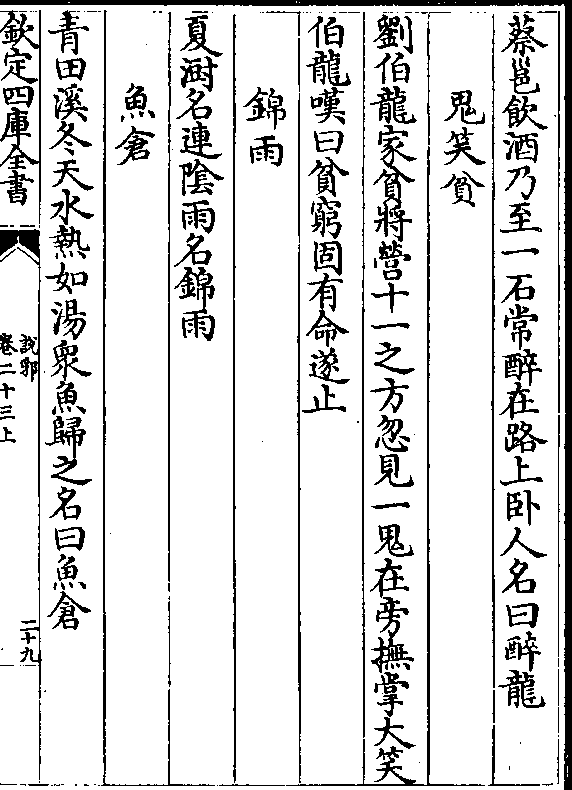 蔡邕飲酒乃至一石常醉在路上卧人名曰醉龍
鬼笑貧
劉伯龍家貧將營十一之方忽見一鬼在旁撫掌大笑
伯龍嘆曰貧窮固有命遂止
錦雨
夏澍名連陰雨名錦雨
魚倉
青田溪冬天水熱如湯衆魚歸之名曰魚倉
欽定四庫全書
說郛
卷二十三上
二十九